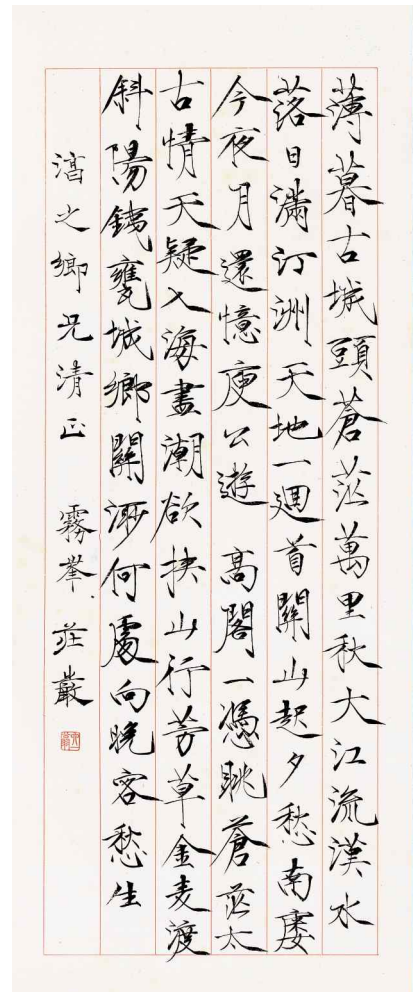 薄暮古城頭蒼茫萬里秋大江流漢水
落日滿汀洲天地一迴首關山起夕愁南廔
今夜月還憶庾公遊 高閣一憑眺蒼茫太
古情天疑入海盡潮欲挾山行芳草金麦渡
斜陽鐵甕城鄉關渺何處向晚客愁生
湻之鄉兄清正 霧峯 莊嚴